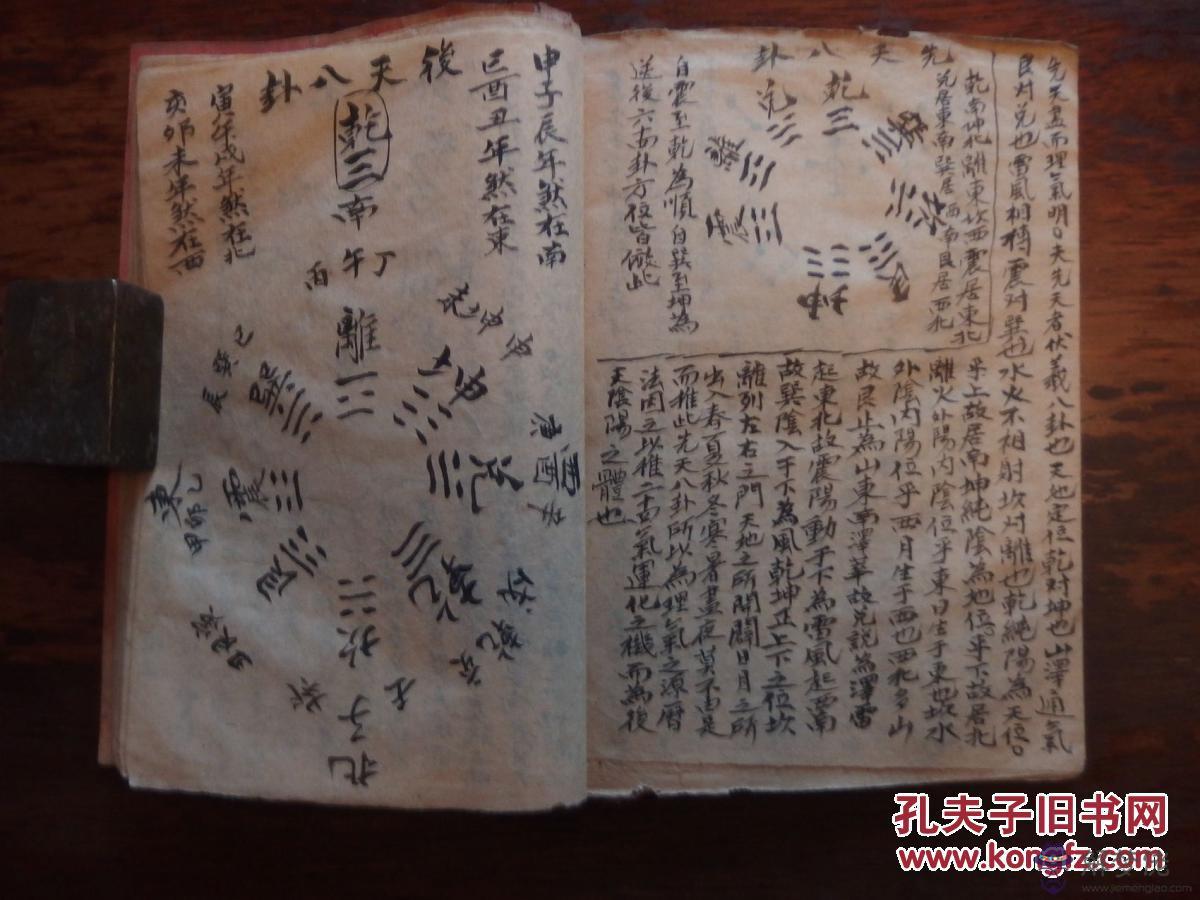 先天畫而理氣明夫先天者伏羲八卦也天地定位乾对坤也山澤通氣
艮对兑也雷風相搏震对巽也水火不相射坎对離也乾純陽為天位
乎上故居南坤純陰為地位乎下故居北
離火外陽内陰位乎東日生于東也坎水
外陰内陽位乎西月生于西也西北多山
故艮止為山東南澤萃故兑説為澤雷
起東北故震陽動于下為雷風起西南
故巽陰入于下為風乾坤正上下之位坎
離列左右之門天地之所闔闢日月之所
出入春夏秋冬寒暑晝夜莫不由是
而推此先天八卦所以為理氣之源曆
法因之以推二十四氣運化之機而為後
天陰陽之體也
先天八卦
乾南坤北離東坎西震居東北
兑居東南巽居西南艮居西北
乾
兑
離
震
巽
坎
艮
坤
自震至乾為順自巽至坤為
逆後六十四卦方位皆倣此
後天八卦
申子辰年煞在南
巳酉丑年煞在東
寅午戌年煞在北
亥卯未年煞在西
乾
南
丁
午
丙
離
坤
兑
西
庚
酉
辛
乾
坎
子
北
艮
震
東
甲卯乙
巽
辰
巳
癸
壬
孔夫子旧书网
www.kongfz.com
解梦佬
www.jiemenglao.com